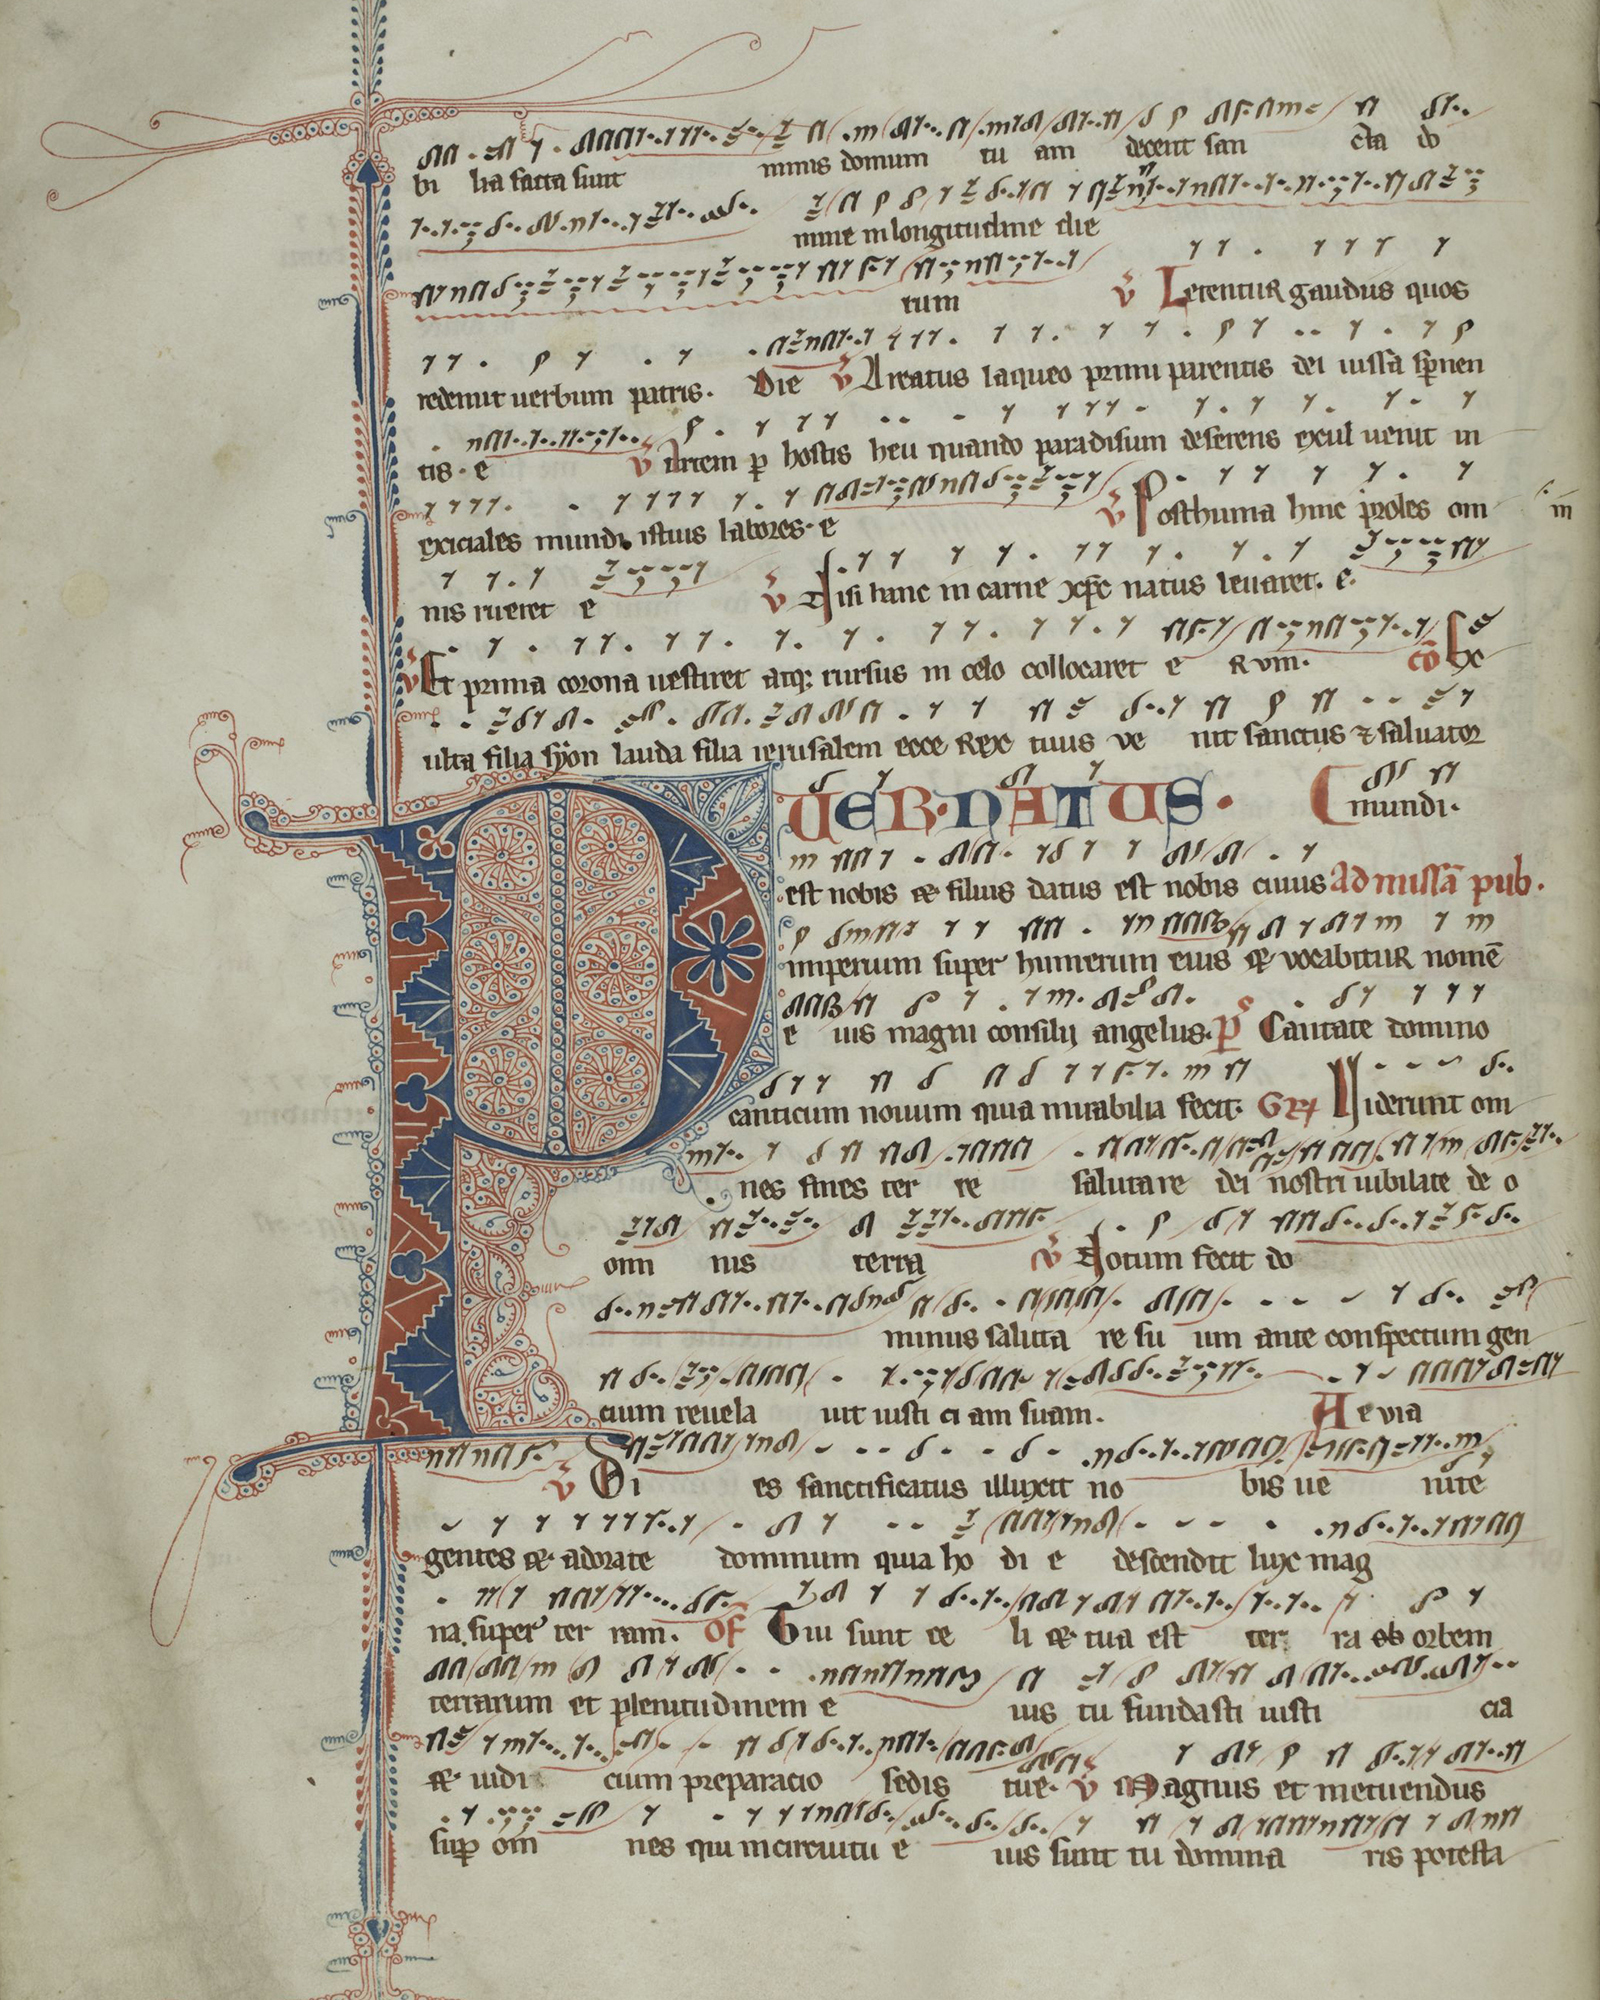 bi lia facta sunt nimis domum tu am decent san cta do
mine in longitudine die
rum v̄ Letentur gaudiis quos
redemit uerbum patris. Die v̄ Areatus laqueo primi parentis dei iussa sp̄nen
tis. e v̄ Artem p̄ hostis heu quando paradisum deserens exul uenit in
exiciales mundi istius labores. e v̄ Posthuma hinc proles om in
nis rueret e v̄ Nisi hanc in carne xp̄c natus leuaret. e.
v̄ Et prima corona uestiret atq; rursus in celo collocaret e Rum. cō Ex
ulta filia syon lauda filia ierusalem ecce Rex tuus ve nit sanctus ⁊ saluator
PUER·NATUS. mundi.
est nobis et filius datus est nobis cuius Ad missā pub.
imperium super humerum eius et vocabitur nomē
e ius magni consilij angelus. p̄s Cantate domino
canticum nouum quia mirabilia fecit. Gr Viderunt om
nes fines ter re salutare dei nostri iubilate de o
omnis terra v̄ Notum fecit do
minus saluta re su um ante conspectum gen
cium reuela uit iusti ci am suam. Aevia
v̄ Di es sanctificatus illuxit no bis ue nite
gentes et adorate dominum quia ho di e descendit lux mag
na super ter ram. Of Tui sunt ce li et tua est ter ra ob orbem
terrarum et plenitudinem e ius tu fundasti iusti cia
et iudi cium preparacio sedis tue. v̄ Magnus et metuendus
sup̄ om̄ nes qui in circuitu e ius sunt tu domina ris potesta